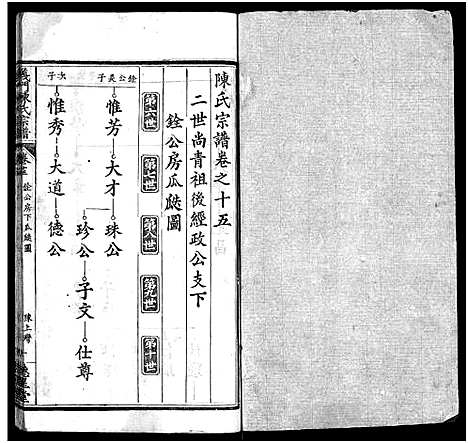 陳氏宗譜卷之十五
二世尚青祖後經政公支下
銓公房瓜瓞圖
第六世
第七世
第八世
第九世
第十世
銓公長子
惟芳
大才
珠公
珍公
子文
仕尊
次子
惟秀
大道
德公
義門陳氏宗譜
銓公房下瓜瓞圖